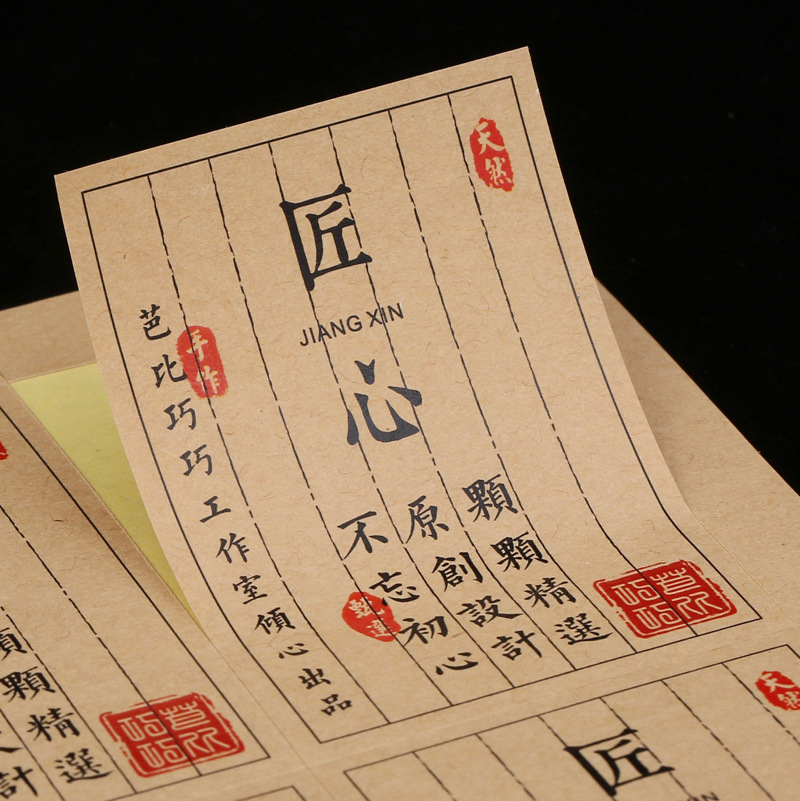 天然
匠
JIANG XIN
心
顆顆精選
原創設計
不忘初心
甄選
手作
芭比巧巧工作室傾心出品
芭比巧巧
顆顆精選
計
芭比巧巧
天然
匠